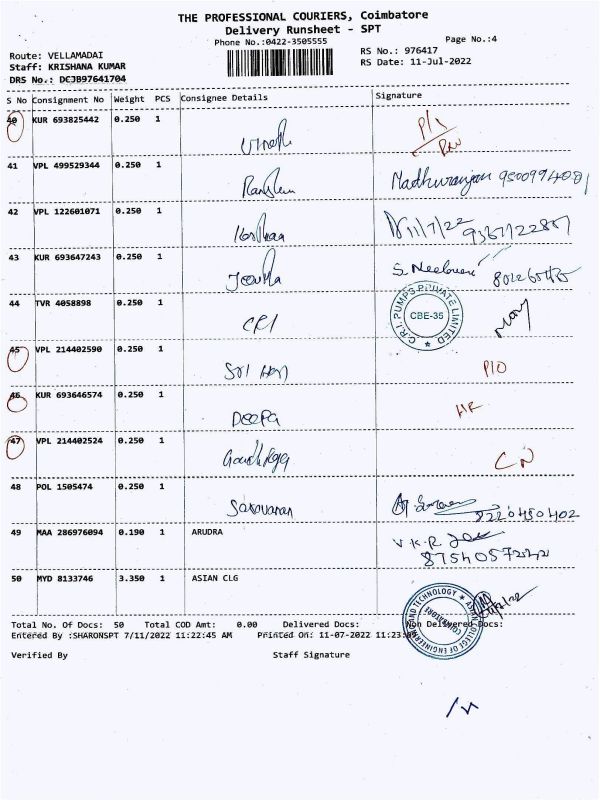 THE PROFESSIONAL COURIERS, Coimbatore
Delivery Runsheet - SPT
Phone No.:0422-3505555
Page No.:4
Route: VELLAMADAI
RS No.: 976417
Staff: KRISHANA KUMAR
RS Date: 11-Jul-2022
DRS No.: DCJB97641704
S No Consignment No Weight PCS Consignee Details Signature
40 KUR 693825442 0.250 1
41 VPL 499529344 0.250 1
Madhuranjan 9500994081
42 VPL 122601071 0.250 1
11/7/22
43 KUR 693647243 0.250 1
44 TVR 4058898 0.250 1
CRI
C.R.I. PUMPS PRIVATE LIMITED
CBE-35
45 VPL 214402590 0.250 1
SRI HARI
P/O
46 KUR 693646574 0.250 1
DEEPA
HR
47 VPL 214402524 0.250 1
CN
48 POL 1505474 0.250 1
Saravanan
8220450402
49 MAA 286976094 0.190 1 ARUDRA
V.K.R
50 MYD 8133746 3.350 1 ASIAN CLG
ASIAN COLLEGE OF ENGINEERING AND TECHNOLOGY
COIMBATORE
Total No. Of Docs: 50 Total COD Amt: 0.00 Delivered Docs: Non Delivered Docs:
Entered By :SHARONSPT 7/11/2022 11:22:45 AM Printed On: 11-07-2022 11:23
Verified By Staff Signature